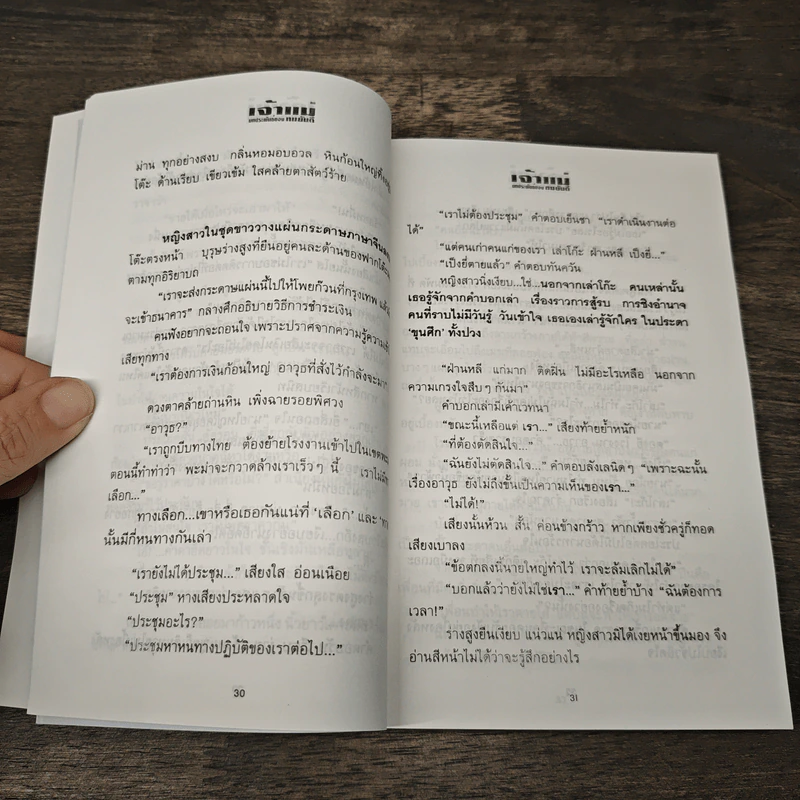 เจ้าแม่
บทประพันธ์ของ ทมยันตี
ม่าน ทุกอย่างสงบ กลิ่นหอมอบอวล หินก้อนใหญ่
โต๊ะ ด้านเรียบ เขียวเข้ม ใสคล้ายตาสัตว์ร้าย
หญิงสาวในชุดขาววางแผ่นกระดาษภาษาจีน
โต๊ะตรงหน้า บุรุษร่างสูงที่ยืนอยู่คนละด้านของฟากโต๊ะ
ตามทุกอิริยาบถ
“เราจะส่งกระดาษแผ่นนี้ไปให้โพยก๊วนที่กรุงเทพ แล้ว
จะเข้าธนาคาร” กล่างศึกอธิบายวิธีการชำระเงิน
คนฟังอยากจะถอนใจ เพราะปราศจากความรู้ความ
เสียทุกทาง
“เราต้องการเงินก้อนใหญ่ อาวุธที่สั่งไว้กำลังจะมา”
ดวงตาคล้ายถ่านหิน เพิ่งฉายรอยพิศวง
“อาวุธ?”
“เราถูกบีบทางไทย ต้องย้ายโรงงานเข้าไปในเขต
ตอนนี้ทำท่าว่า พะม่าจะกวาดล้างเราเร็วๆ นี้ เราไม่มี
เลือก...”
ทางเลือก...เขาหรือเธอกันแน่ที่ ‘เลือก’ และ
นั้นมีกี่หนทางกันเล่า
“เรายังไม่ได้ประชุม...” เสียงใส อ่อนเนือย
“ประชุม” หางเสียงประหลาดใจ
“ประชุมอะไร?”
“ประชุมหาหนทางปฏิบัติของเราต่อไป...”
30
เจ้าแม่
บทประพันธ์ของ ทมยันตี
“เราไม่ต้องประชุม” คำตอบเย็นชา “เราดำเนินงานต่อ
ได้”
“แต่คนเก่าคนแก่ของเรา เล่าโก๊ะ ฝ่านหลี เป็งยี่...”
“เป็งยี่ตายแล้ว” คำตอบทันควัน
หญิงสาวนิ่งเงียบ...ใช่...นอกจากเล่าโก๊ะ คนเหล่านั้น
เธอรู้จักจากคำบอกเล่า เรื่องราวการสู้รบ การชิงอำนาจ
คนที่ราบไม่มีวันรู้ วันเข้าใจ เธอเองเล่ารู้จักใคร ในประดา
‘ขุนศึก’ ทั้งปวง
“ฝ่านหลี แก่มาก ติดฝิ่น ไม่มีอะไรเหลือ นอกจาก
ความเกรงใจสืบๆ กันมา”
คำบอกเล่ามีเค้าเวทนา
“ขณะนี้เหลือแต่ เรา...” เสียงท้ายย้ำหนัก
“ที่ต้องตัดสินใจ...”
“ฉันยังไม่ตัดสินใจ...” คำตอบลังเลนิดๆ “เพราะฉะนั้น
เรื่องอาวุธ ยังไม่ถึงขั้นเป็นความเห็นของเรา...”
“ไม่ได้!”
เสียงนั้นห้วน สั้น ค่อนข้างกร้าว หากเพียงชั่วครู่ก็ทอด
เสียงเบาลง
“ข้อตกลงนี้นายใหญ่ทำไว้ เราจะล้มเลิกไม่ได้”
“บอกแล้วว่ายังไม่ใช่เรา...” คำท้ายย้ำบ้าง “ฉันต้องการ
เวลา!”
ร่างสูงยืนเงียบ แน่วแน่ หญิงสาวมิได้เงยหน้าขึ้นมอง จึง
อ่านสีหน้าไม่ได้ว่าจะรู้สึกอย่างไร
31